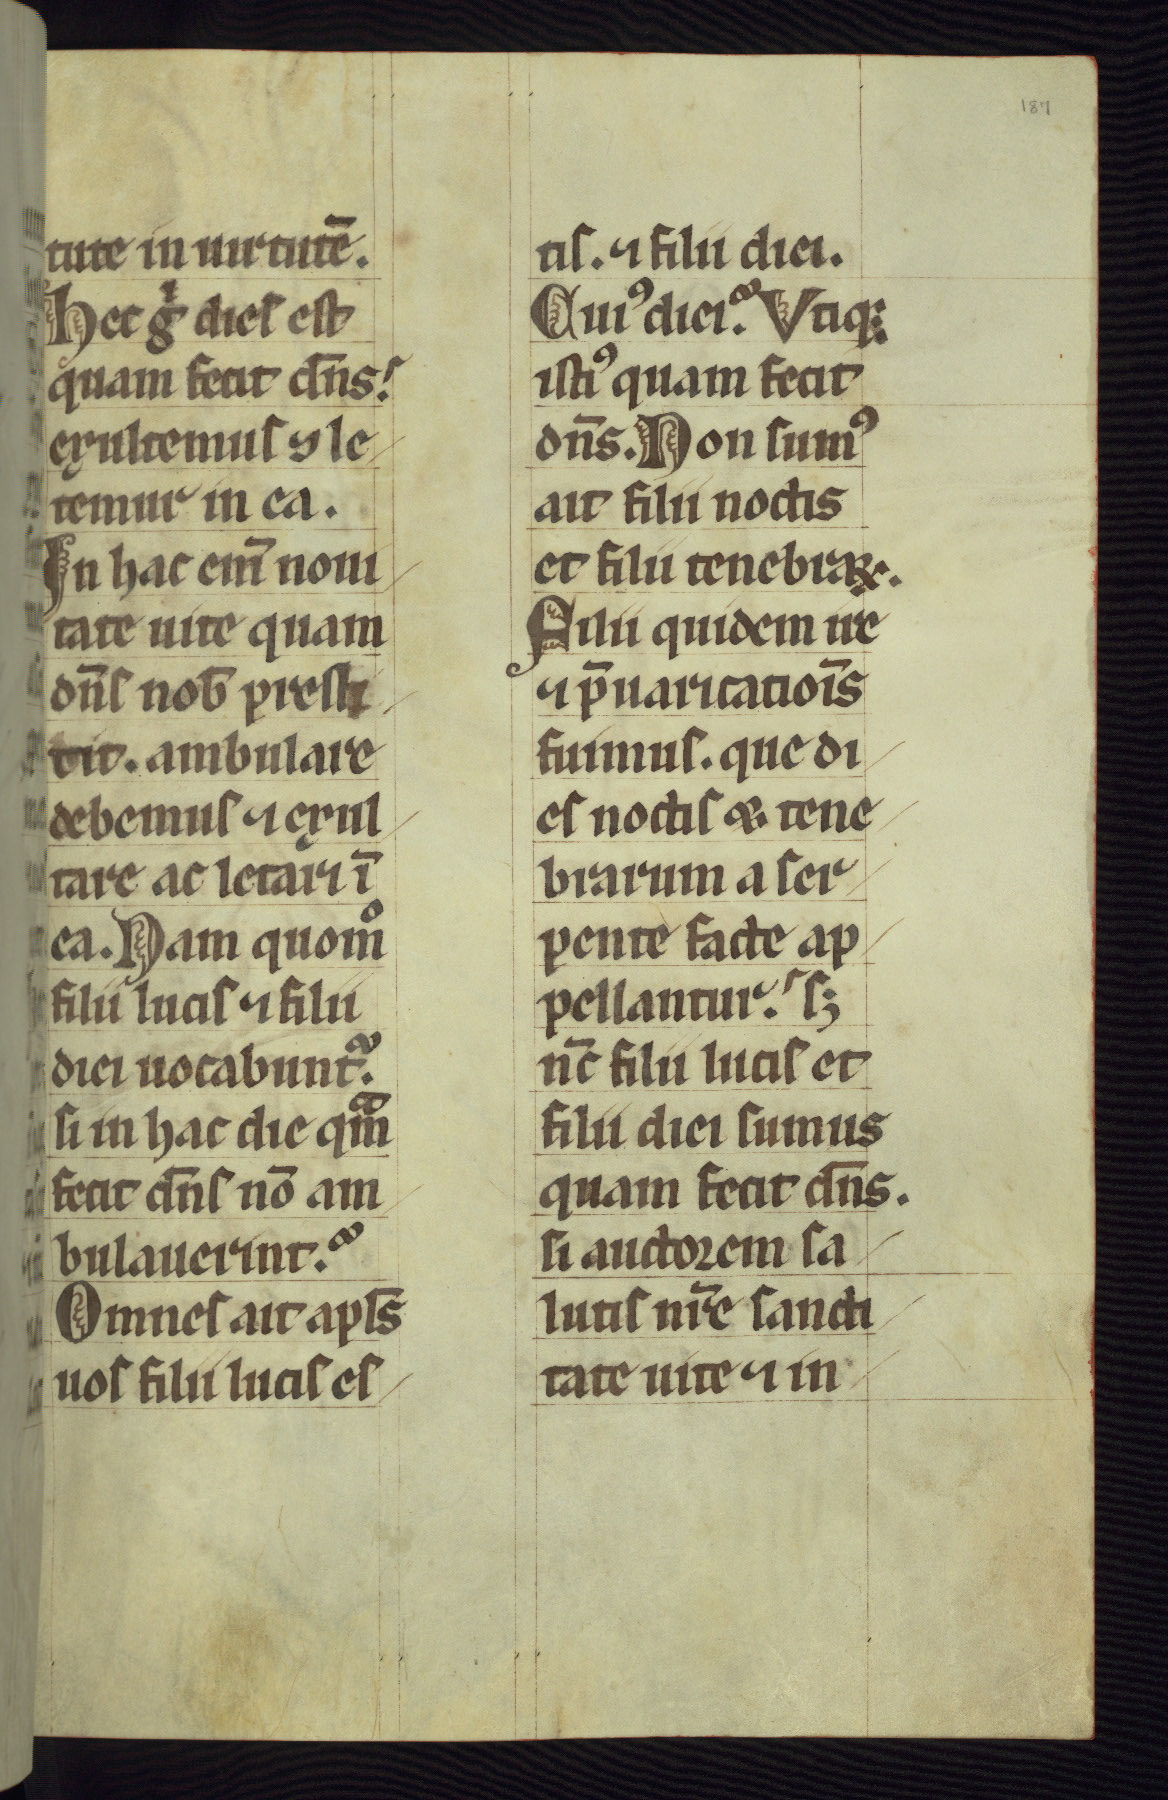 187
tute in uirtutē.
Hec gͥ dies est
quam fecit dn̄s!
exultemus ⁊ le
temur in ea.
In hac em̄ noui
tate uite quam
dn̄s nob̄ presti
tit. ambulare
debemus ⁊ exul
tare ac letari ī
ea. Nam quom̊
filii lucis ⁊ filii
diei uocabunt᷑.
si in hac die qm̄
fecit dn̄s nō am
bulauerint.
Omnes ait apl̄s
uos filii lucis es
tis. ⁊ filii diei.
Cuiꝰ diei. Vtiqꝫ
istiꝰ quam fecit
dn̄s. Non sumꝰ
ait filii noctis
et filii tenebraꝝ.
Filii quidem ire
⁊ p̄uaricatioīs
fuimus. que di
es noctis & tene
brarum a ser
pente facte ap
pellantur. sꝫ
nc̄ filii lucis et
filii diei sumus
quam fecit dn̄s.
si auctorem sa
lutis nr̄e sancti
tate uite ⁊ in